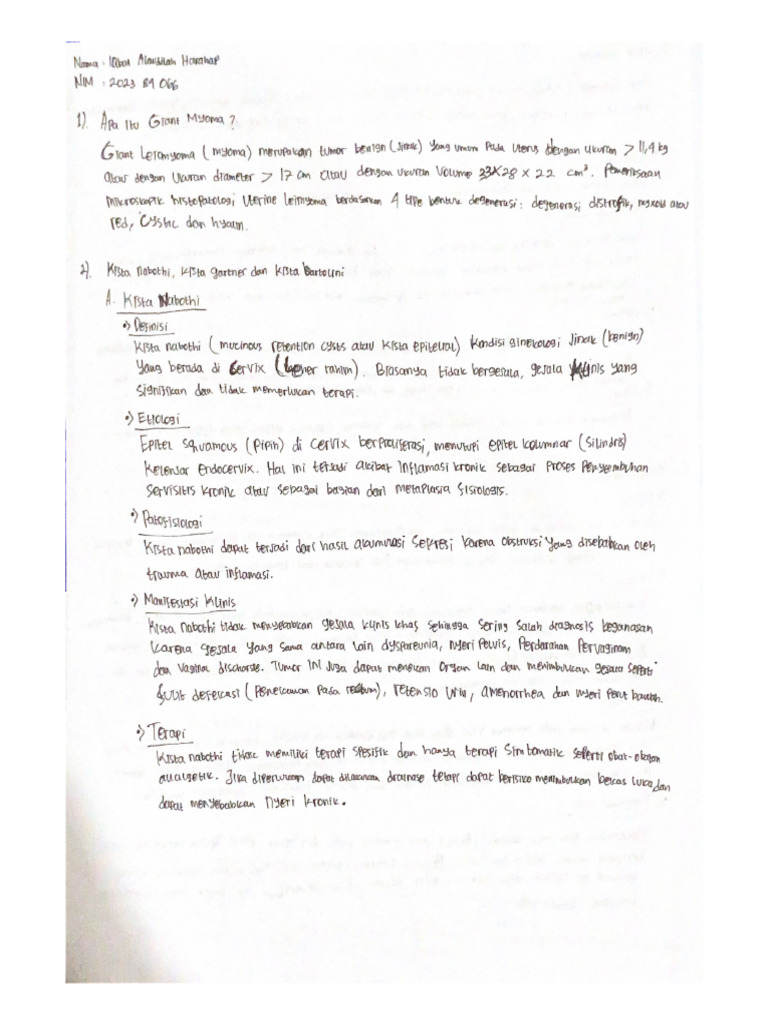 Nama : Iqbal Alawillah Harahap
NIM : 2023 84 066
1). Apa itu Giant Myoma ?
Giant Leiomyoma (myoma) merupakan tumor benign (jinak) yang umum pada uterus dengan ukuran > 11,4 kg
atau dengan ukuran diameter > 17 cm atau dengan ukuran volump 33x28 x 22 cm³. Pemeriksaan
mikroskopik histopatologi uterine leimyoma berdasarkan 4 tipe bentuk degenerasi : degenerasi distrofik, myxoid atau
red, cystic dan hyalin.
2). Kista nabothi, kista gartner dan kista Bartolini
A. Kista Nabothi
•) Definisi
Kista nabothi (mucinous retention cysts atau kista epitelial) kondisi ginekologi jinak (benign)
yang berada di cervix (leher rahim). Biasanya tidak bergejala, gejala klinis yang
signifikan dan tidak memerlukan terapi.
•) Etiologi
Epitel squamous (pipih) di cervix berproliserasi, menutupi epitel kolumnar (silindris)
kelenjar endocervix. Hal ini terjadi akibat inflamasi kronik sebagai proses penyembuhan
servisitis kronik atau sebagai bagian dari metaplasia fisiologis.
•) Patofisiologi
Kista nabothi dapat terjadi dari hasil akumulasi sekresi karena obstruksi yang disebabkan oleh
trauma atau inflamasi.
•) Manifestasi Klinis
Kista nabothi tidak menyebabkan gejala klinis khas sehingga sering salah diagnosis keganasan
karena gejala yang sama antara lain dyspareunia, nyeri pelvis, perdarahan pervaginam
dan vaginal discharge. Tumor ini juga dapat menekan organ lain dan menimbulkan gejala seperti
sulit defekasi (penekanan pada rectum), retensio urin, amenorrhea dan nyeri perut bawah.
•) Terapi
Kista nabothi tidak memiliki terapi spesifik dan hanya terapi simtomatik seperti obat-obatan
analgetik. Jika diperlukan dapat dilakukan drainase tetapi dapat berisiko menimbulkan bekas luka dan
dapat menyebabkan nyeri kronik.